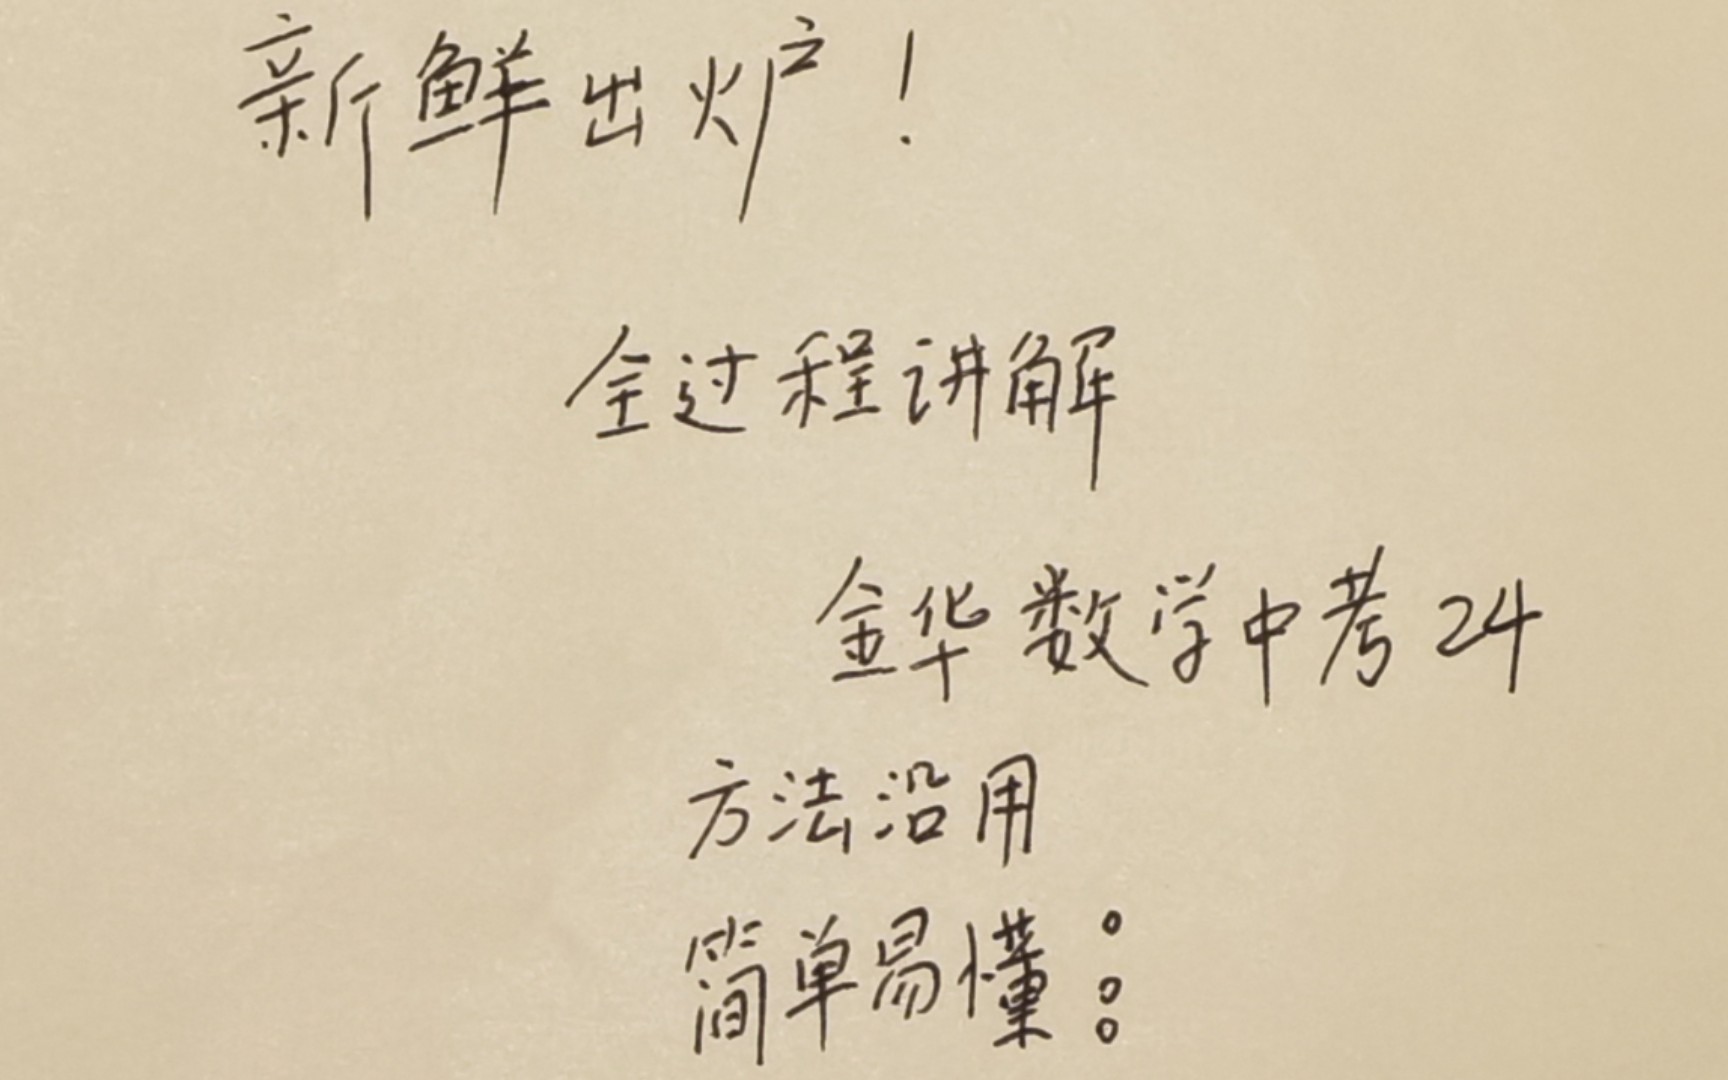 新鲜出炉！
全过程讲解
金华数学中考24
方法沿用
简单易懂